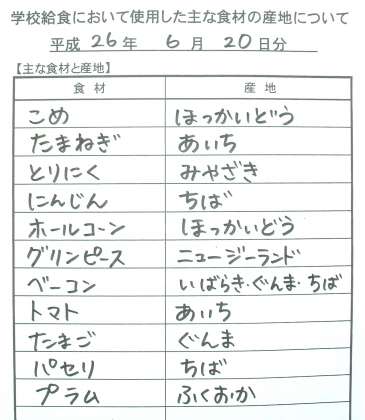 学校給食において使用した主な食材の産地について
平成 26 年 6 月 20 日分
【主な食材と産地】
食材 産地
こめ ほっかいどう
たまねぎ あいち
とりにく みやざき
にんじん ちば
ホールコーン ほっかいどう
グリンピース ニュージーランド
ベーコン いばらき・ぐんま・ちば
トマト あいち
たまご ぐんま
パセリ ちば
プラム ふくおか